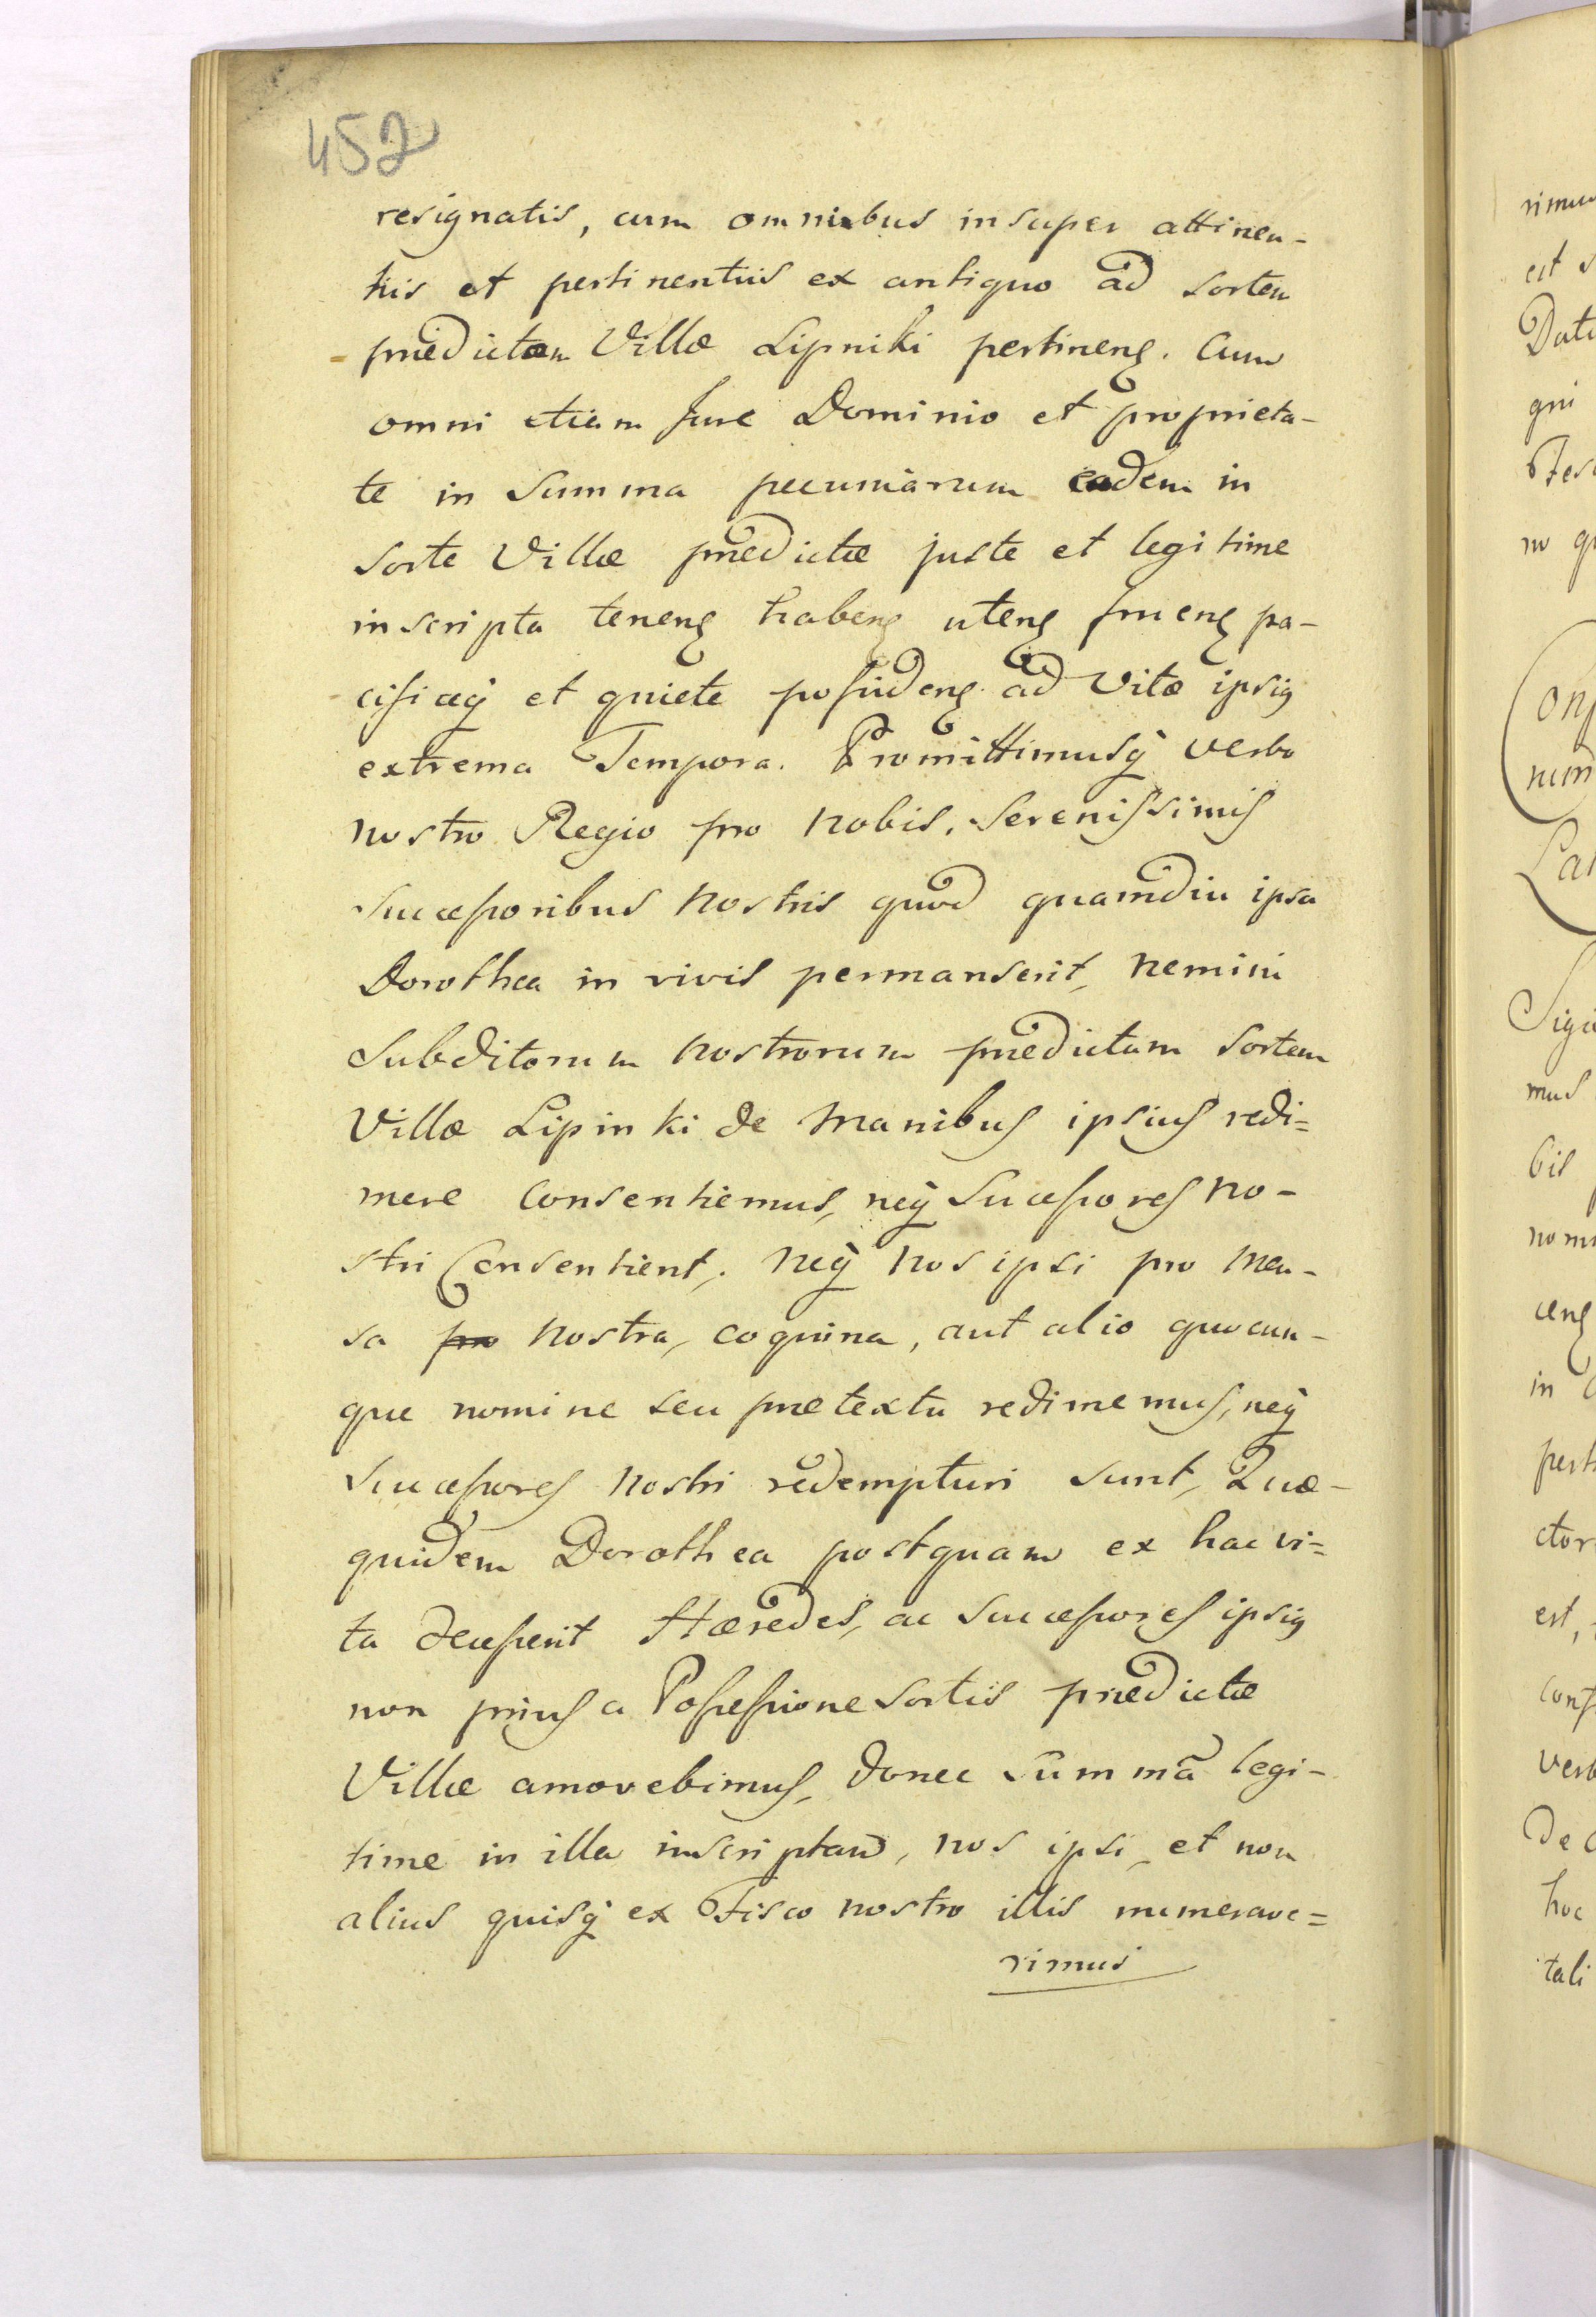 452
resignatis, cum omnibus insuper attinen-
tiis et pertinentiis ex antiquo ad sortem
prædictam Villæ Lipniki pertineng. Cum
omni etiam Jure Dominio et proprieta-
te in Summa pecuniarum eadem in
sorte Villæ prædictæ juste et legitime
inscripta teneng habeng uteng frueng pa-
cificeq et quiete poßideng ad Vitæ ipsig
extrema Tempora. Promittimusq verbo
nostro Regio pro nobis, Serenissimis
Succeßoribus Nostris quod quamdiu ipsa
Dorothea in vivis permanserit, nemini
Subditorum Nostrorum prædictam Sortem
Villæ Lipinki de Manibus ipsius redi=
mere Consentiemus, neq Succeßores No-
stri Consentient, neq nos ipsi pro Men-
sa pro Nostra, coquina, aut alio quocun-
que nomine seu prætextu redimemus, neq
Succeßores Nostri redempturi sunt, Quæ-
quidem Dorothea postquam ex hac vi=
ta deceßerit Hæredes, ac Succeßores ipsig
non prius a Poßeßione Sortis prædictæ
Villæ amovebimus, donec Summã legi-
time in illa inscriptam, nos ipsi, et non
alius quisq ex Fisco nostro illis numerave=
rimus
rimus
est
Datu
qui
(Con
Sigi
mus
bis
nomi
in
ctor
est,
conf
verb
De
hoc
tali